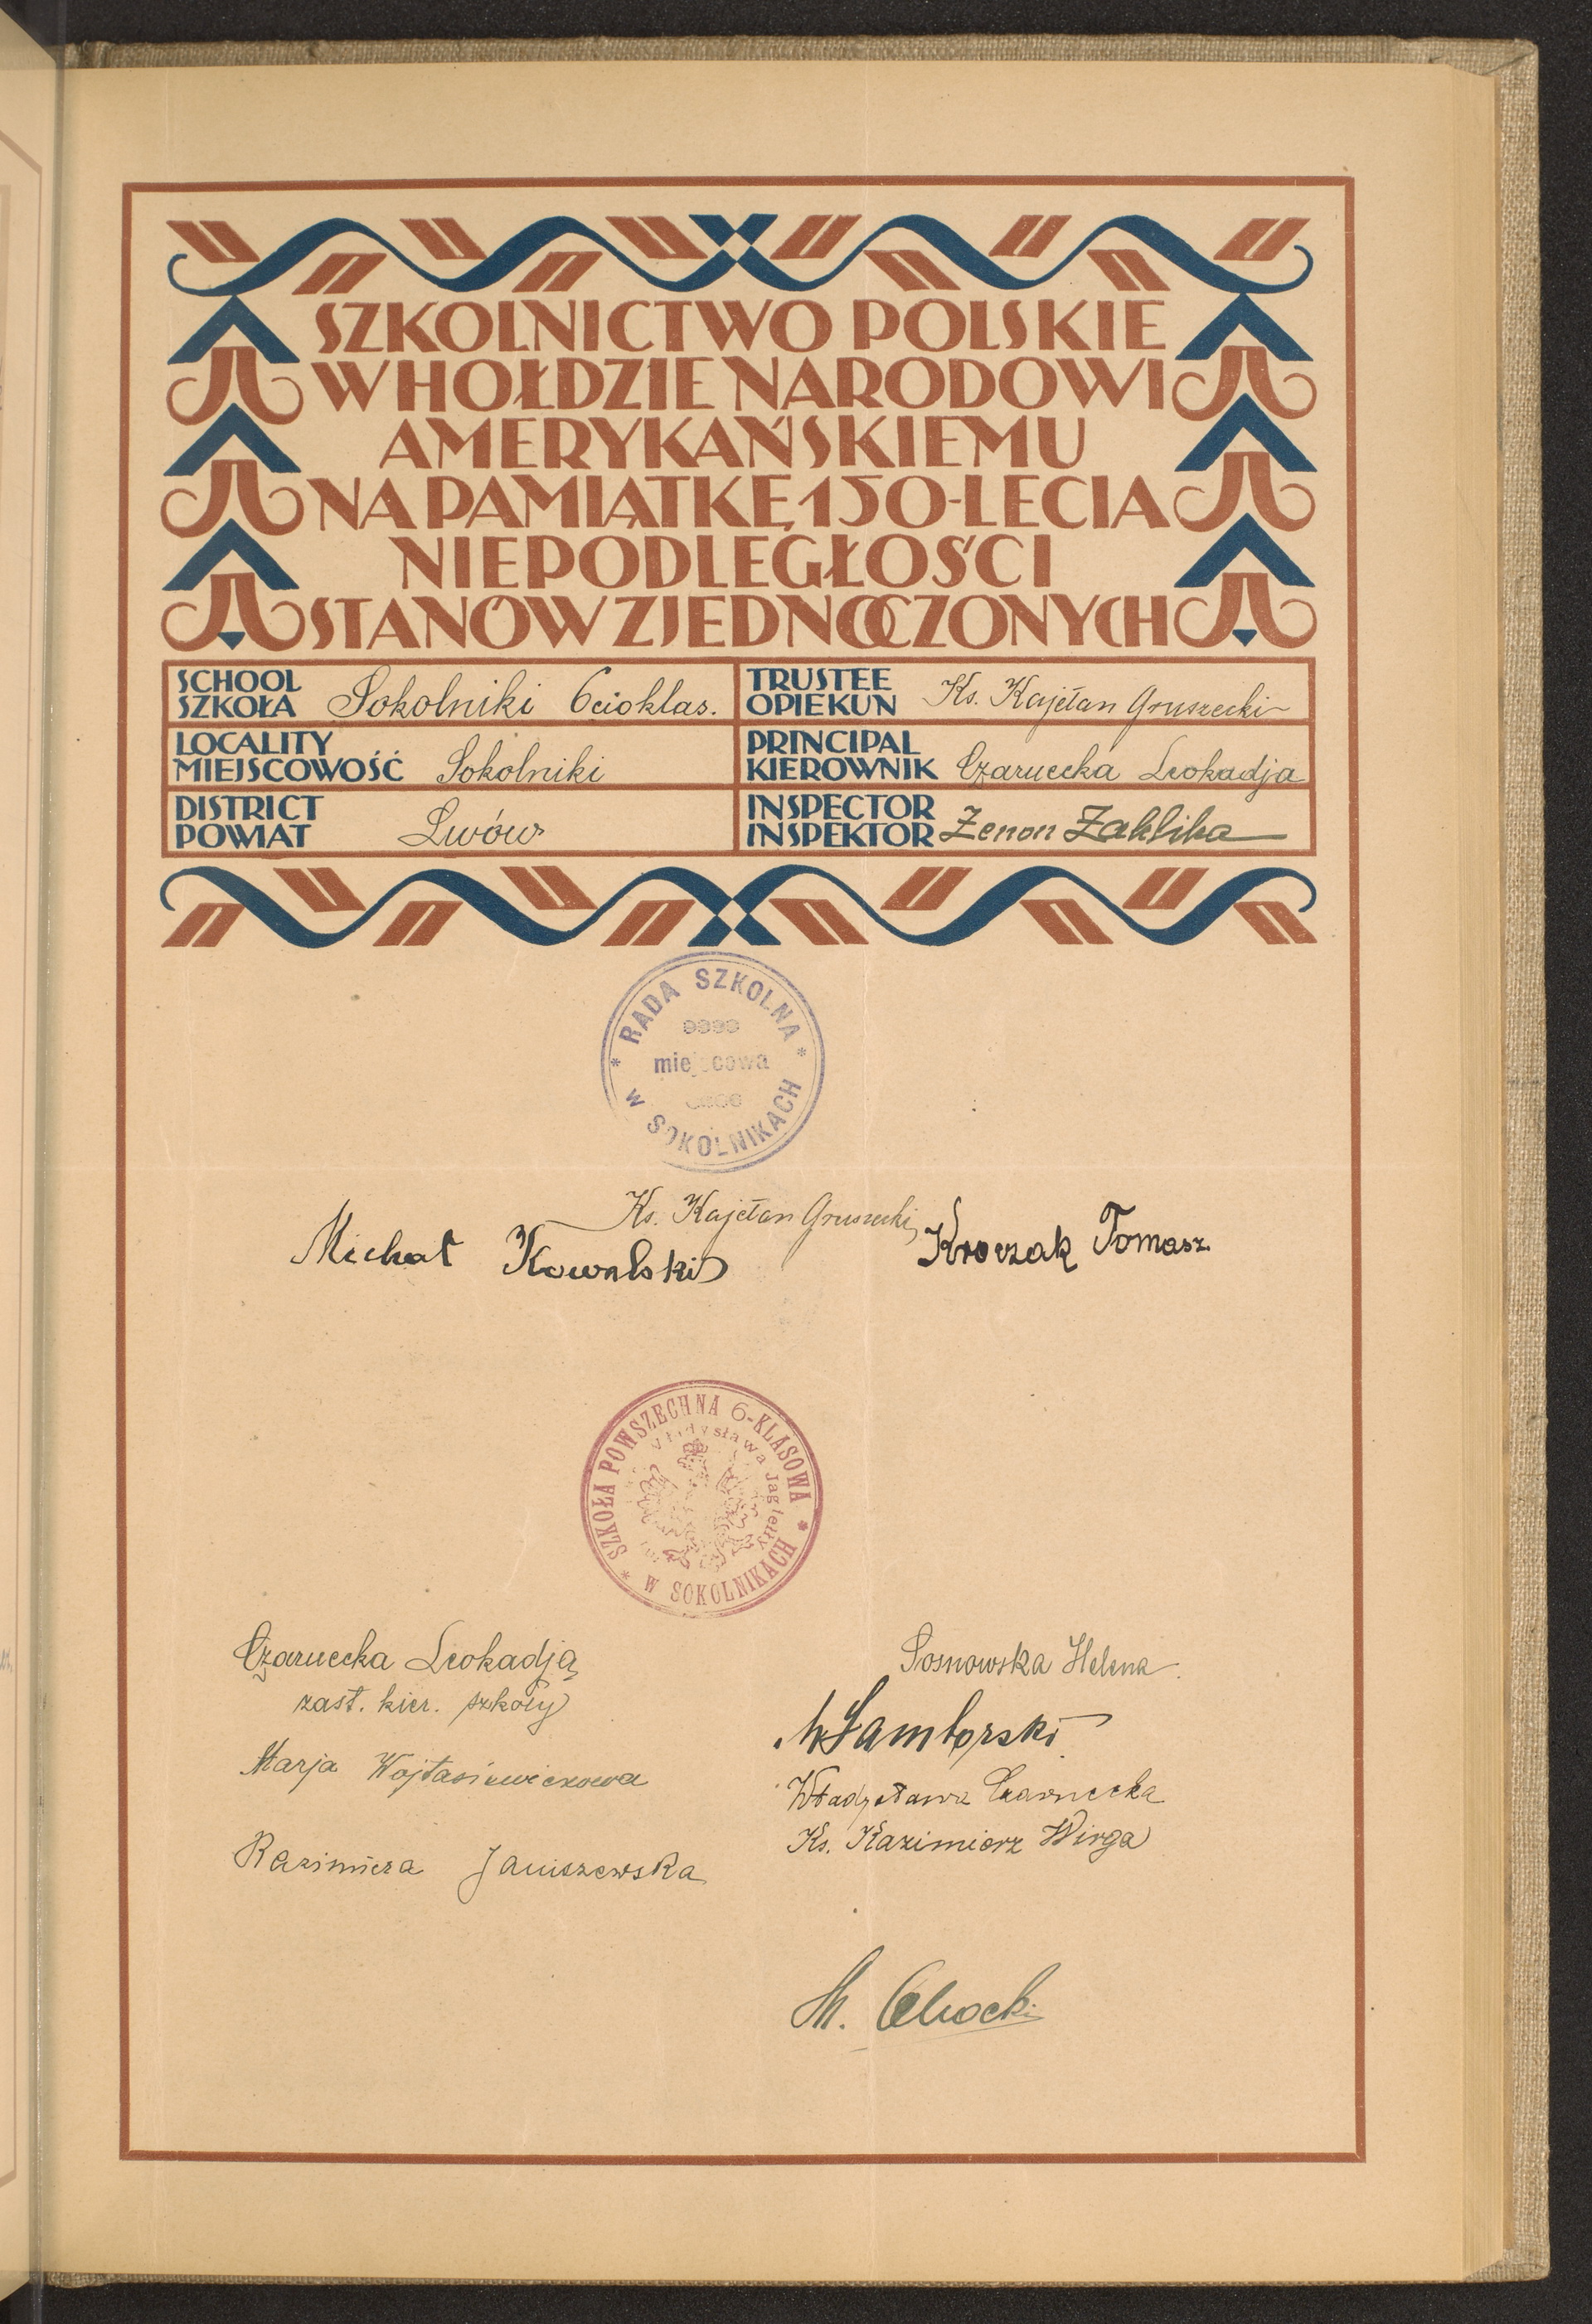 SZKOLNICTWO POLSKIE
W HOŁDZIE NARODOWI
AMERYKAŃSKIEMU
NA PAMIĄTKĘ 150-LECIA
NIEPODLEGŁOŚCI
STANÓW ZJEDNOCZONYCH
SCHOOL
SZKOŁA Sokolniki 6cioklas.
TRUSTEE
OPIEKUN Ks. Kajetan Gruszecki
LOCALITY
MIEJSCOWOŚĆ Sokolniki
PRINCIPAL
KIEROWNIK Czarnecka Leokadja
DISTRICT
POWIAT Lwów
INSPECTOR
INSPEKTOR Zenon Zaklika
* RADA SZKOLNA *
miejscowa
w SOKOLNIKACH
Ks. Kajetan Gruszecki
Michał Kowalski Kroczak Tomasz
* SZKOŁA POWSZECHNA 6-KLASOWA *
im. Władysława Jagiełły
W SOKOLNIKACH
Czarnecka Leokadja
zast. kier. szkoły
Marja Wojtasiewiczowa
Kazimiera Janiszewska
Sosnowska Helena
W Samborski
Władysława Czarnecka
Ks. Kazimierz Wirga
St. Cichocki